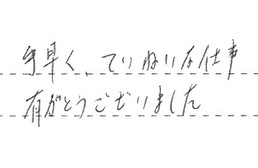 手早く、ていねいな仕事
有がとうございました